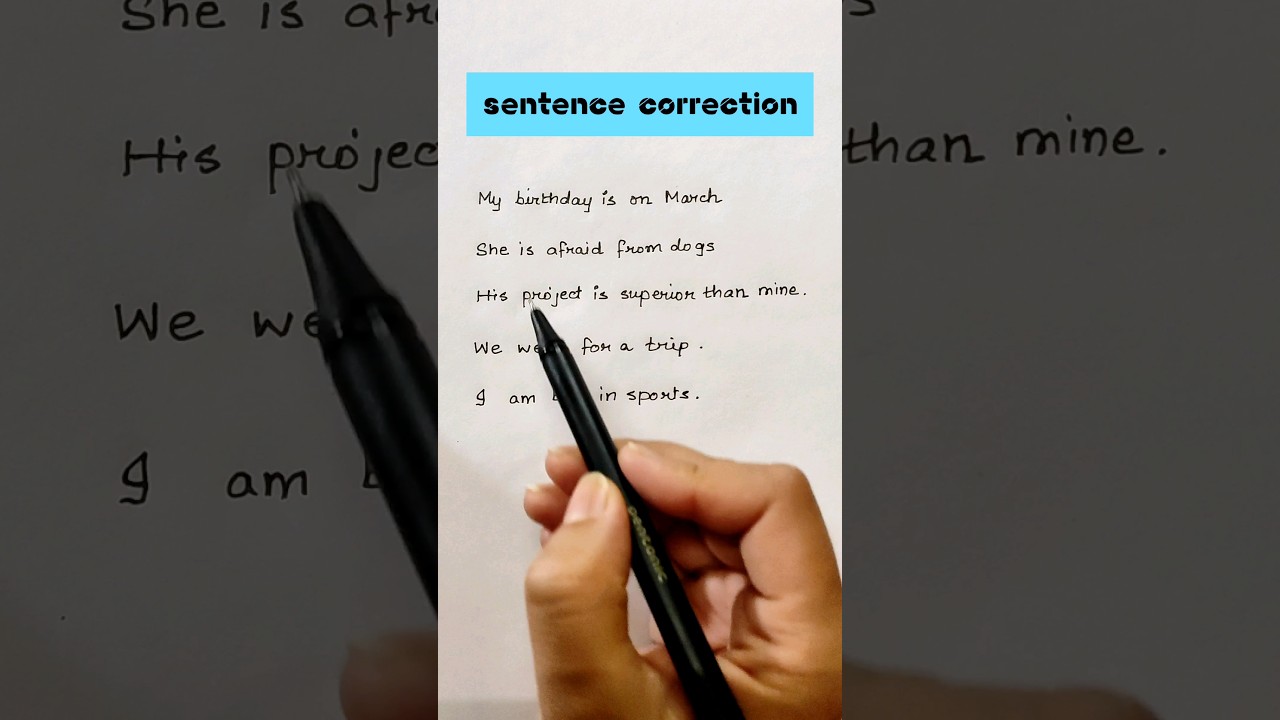 sentence correction
My birthday is on March
She is afraid from dogs
His project is superior than mine.
We for a trip.
I am in sports.